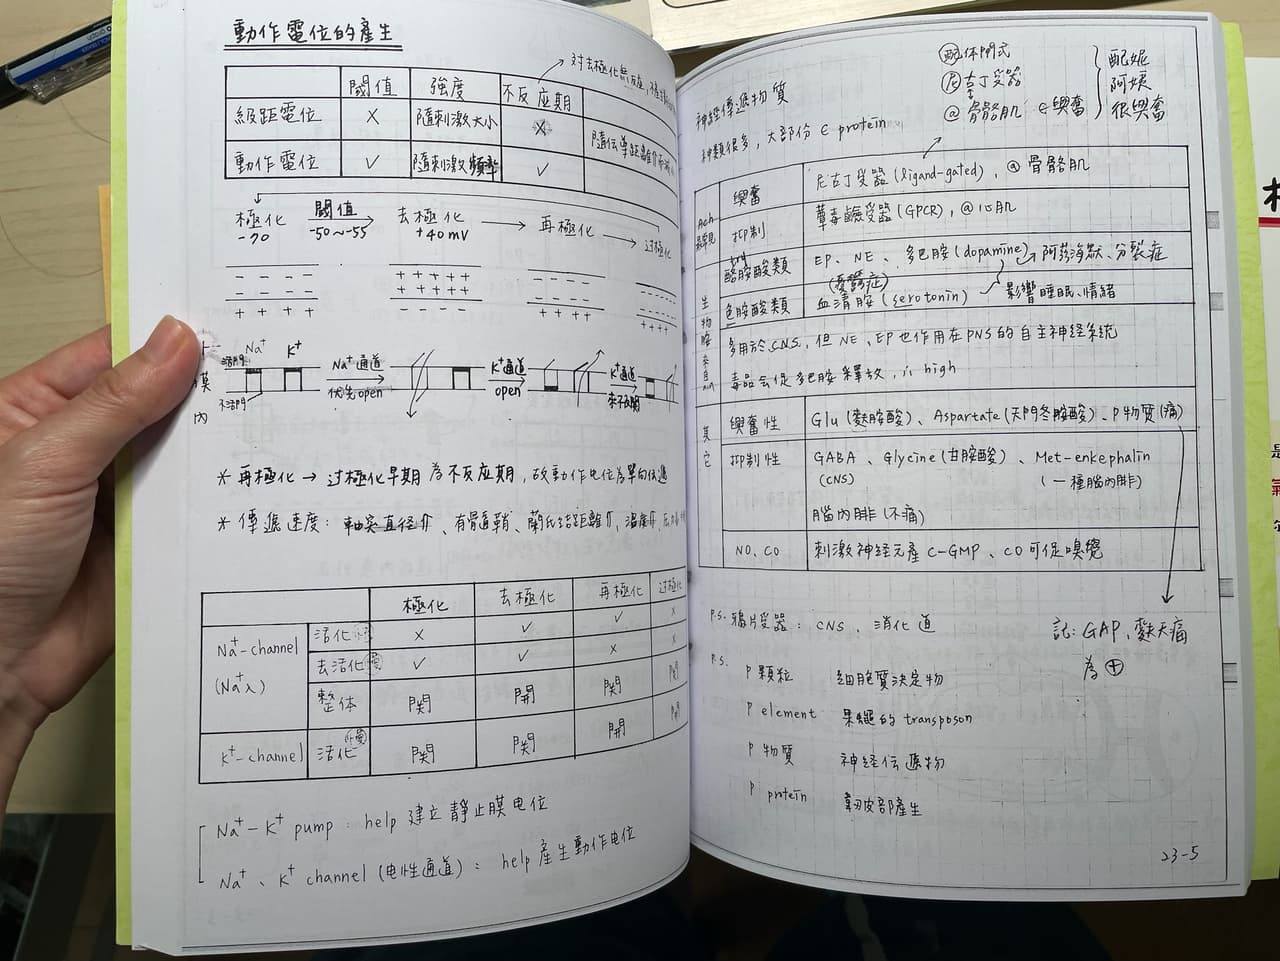 動作電位的產生
閾值 強度 不反應期
級距電位 X 隨刺激大小 X
動作電位 ✓ 隨刺激頻率 ✓
極化 閾值 去極化 再極化 过極化
-70 -50~-55 +40mV
Na⁺ K⁺
Na⁺通道 優先open
K⁺通道 open
K⁺通道
膜
內
* 再極化 → 过極化早期 為不反应期, 故動作电位為單向伝遞
* 傳遞速度: 軸突直径个、有骨逭鞘、蘭氏結距離个, 溫度个
極化 去極化 再極化 过極化
Na⁺-channel
(Na⁺入)
活化 X ✓ ✓ X
去活化慢 ✓ ✓ X X
整体 関 開 関 関
K⁺-channel 活化慢 関 関 開 関
Na⁺-K⁺ pump: help 建立靜止膜电位
Na⁺、K⁺ channel (电性通道): help 產生動作电位
配体閘式
尼古丁受器
@骨骼肌 ∈興奮
配妮
阿姨
很興奮
神経傳遞物質
種類很多, 大部份 ∈ protein
Ach
興奮 尼古丁受器(ligand-gated), @骨骼肌
抑制 蕈毒鹼受器(GPCR), @心肌
酪胺酸類 EP、NE、多巴胺(dopamine) 阿茲海默、分裂症
(憂鬱症)
色胺酸類 血清胺(serotonin) 影響睡眠、情緒
多用於CNS, 但NE、EP也作用在PNS的自主神經系統
毒品会促多巴胺釋放, ∴high
其它
興奮性 Glu(麩胺酸)、Aspartate(天門冬胺酸)、P物質(痛)
抑制性 GABA、Glycine(甘胺酸)、Met-enkephalin
(CNS) (一種腦內啡)
腦內啡(不痛)
NO、CO 刺激神経元產C-GMP、CO可促嗅覺
P.S. 鴉片受器: CNS、消化道
記: GAP、麩天痛
為⊕
P.S. P顆粒 細胞質決定物
P element 果蠅的transposon
P物質 神経伝遞物
P protein 韌皮部產生
23-5